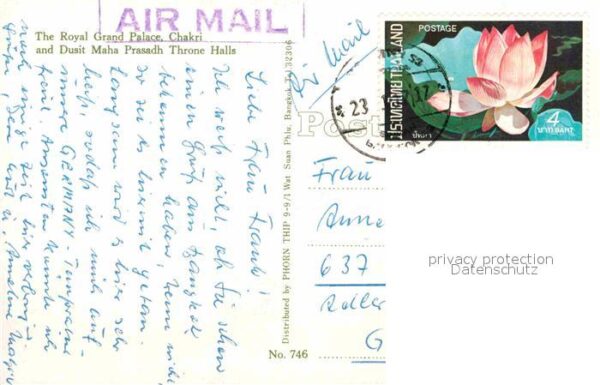 AIR MAIL
The Royal Grand Palace, Chakri
and Dusit Maha Prasadh Throne Halls
Air Mail
Liebe Frau Frank!
Ich weiß nicht, ob Sie schon
einen Gruß aus Bangkok
bekommen haben, wenn nicht,
so sei es hiermit getan.
Langsam wird es hier sehr
heiß, sodaß ich mich auf
unsere GERMANY-Temperatur
freue. Ansonsten könnte ich
noch einige Zeit hier verbringen.
Distributed by PHORN THIP 9-9/1 Wat Suan Phlu, Bangkok Tel 32306
No. 746
Post
ประเทศไทย THAILAND
POSTAGE
4
บาท BAHT
ปทุมา
23
Frau
Anne
637
Adler
G
privacy protection
Datenschutz